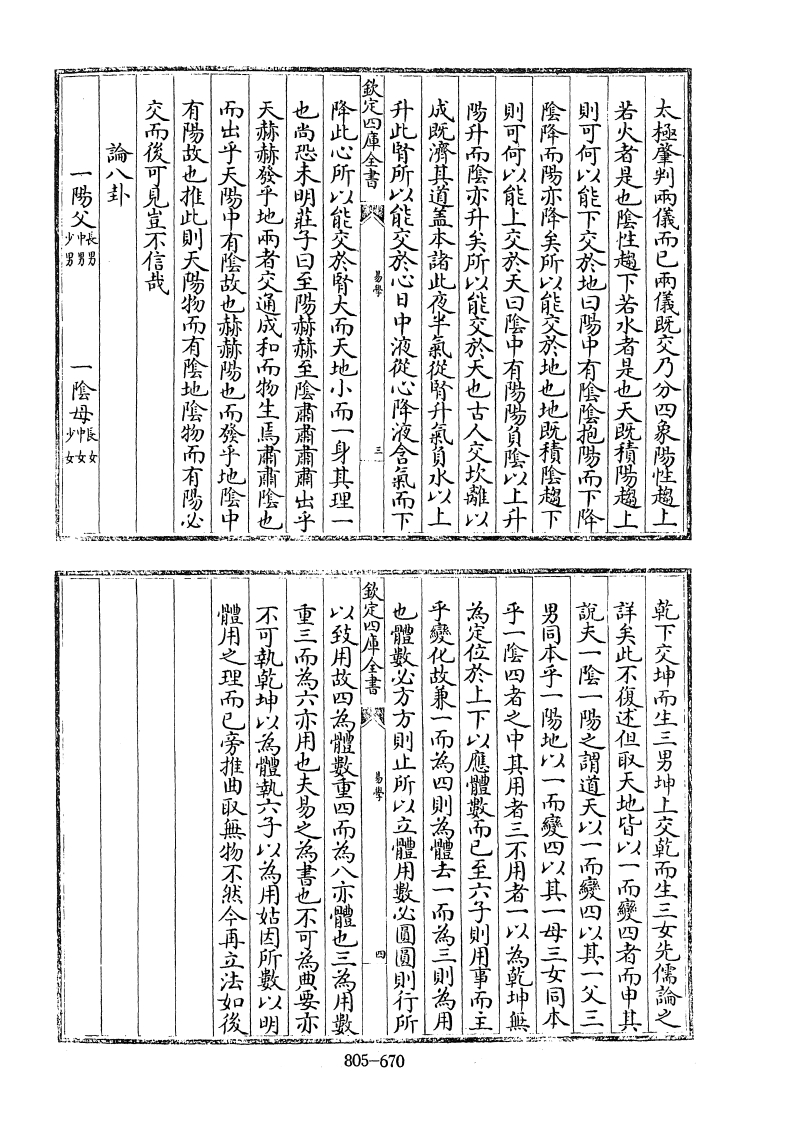 太極肇判兩儀而已兩儀既交乃分四象陽性趨上
若火者是也陰性趨下若水者是也天既積陽趨上
則可何以能下交於地曰陽中有陰陰抱陽而下降
陰降而陽亦降矣所以能交於地也地既積陰趨下
則可何以能上交於天曰陰中有陽陽負陰以上升
陽升而陰亦升矣所以能交於天也古人交坎離以
成既濟其道蓋本諸此夜半氣從腎升氣負水以上
升此腎所以能交於心日中液從心降液含氣而下
欽定四庫全書
易學
三
降此心所以能交於腎大而天地小而一身其理一
也尚恐未明莊子曰至陽赫赫至陰肅肅肅肅出乎
天赫赫發乎地兩者交通成和而物生焉肅肅陰也
而出乎天陽中有陰故也赫赫陽也而發乎地陰中
有陽故也推此則天陽物而有陰地陰物而有陽必
交而後可見豈不信哉
論八卦
一陽父 長男 中男 少男 一陰母 長女 中女 少女
乾下交坤而生三男坤上交乾而生三女先儒論之
詳矣此不復述但取天地皆以一而變四者而申其
說夫一陰一陽之謂道天以一而變四以其一父三
男同本乎一陽地以一而變四以其一母三女同本
乎一陰四者之中其用者三不用者一以為乾坤無
為定位於上下以應體數而已至六子則用事而主
乎變化故兼一而為四則為體去一而為三則為用
也體數必方方則止所以立體用數必圓圓則行所
欽定四庫全書
易學
四
以致用故四為體數重四而為八亦體也三為用數
重三而為六亦用也夫易之為書也不可為典要亦
不可執乾坤以為體執六子以為用姑因所數以明
體用之理而已旁推曲取無物不然今再立法如後
805-670